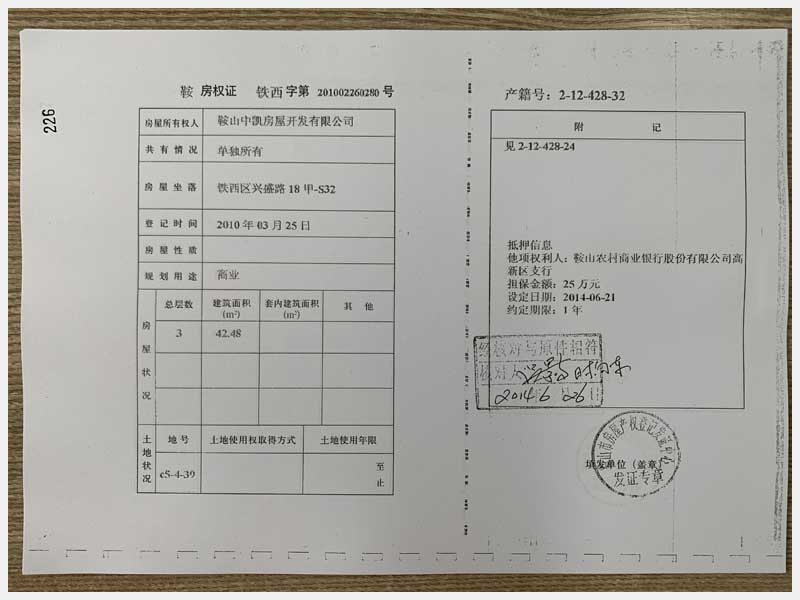 226
鞍 房权证 铁西 字第 201002260280 号
房屋所有权人 鞍山中凯房屋开发有限公司
共有情况 单独所有
房屋坐落 铁西区兴盛路 18 甲-S32
登记时间 2010 年 03 月 25 日
房屋性质
规划用途 商业
房屋状况
总层数 建筑面积(m²) 套内建筑面积(m²) 其 他
3 42.48
土地状况
地号 土地使用权取得方式 土地使用年限
c5-4-39 至
止
产籍号：2-12-428-32
附 记
见 2-12-428-24
抵押信息
他项权利人：鞍山农村商业银行股份有限公司高
新区支行
担保金额：25 万元
设定日期：2014-06-21
约定期限：1 年
经核对与原件相符
核对人
2014 6 26
山市房屋产权登记发证中心
填发单位（盖章）
发证专章